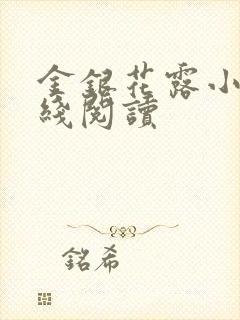 金銀花露小
綫閱讀
銘希